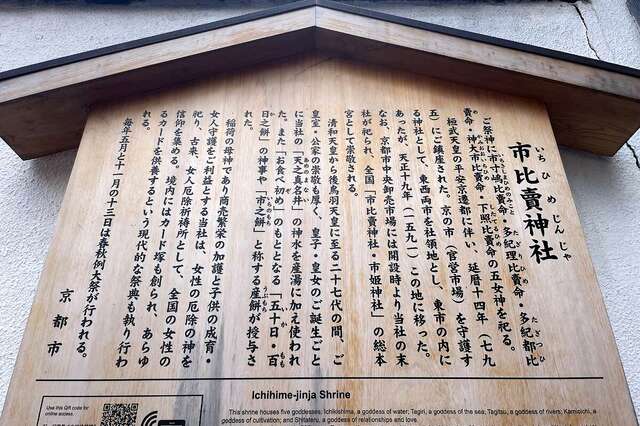 市比賣神社
いちひめじんじゃ
ご祭神に市寸嶋比賣命・多紀理比賣命・多紀都比
賣命・神大市比賣命・下照比賣命の五女神を祀る。
桓武天皇の平安京遷都に伴い、延暦十四年（七九
五）にご鎮座された。京の市（官営市場）を守護す
る神社として、東西両市を社領地とし、東市の内に
あったが、天正十九年（一五九一）この地に移った。
なお、京都市中央卸売市場には開設時より当社の末
社が祀られ、全国「市比賣神社・市姫神社」の総本
宮として崇敬される。
清和天皇から後鳥羽天皇に至る二十七代の間、ご
皇室・公家の崇敬も厚く、皇子・皇女のご誕生ごと
に当社の「天之真名井」の神水を産湯に加え使われ
た。また「お食べ初め」のもととなる「五十日・百
日之餅」の神事や「市之餅」と称する産餅が授与さ
れた。
稲荷の母神であり商売繁栄の加護と子供の成育・
女人守護をご利益とする当社は、女性の厄除の神を
祀り、古来、女人厄除祈祷所として、全国の女性の
信仰を集める。境内にはカード塚も創られ、あらゆ
るカードを供養するという現代的な祭典も執り行わ
れる。
毎年五月と十一月の十三日は春秋例大祭が行われる。
京都市
Use this QR code for
online access.
Ichihime-jinja Shrine
This shrine houses five goddesses: Ichikishima, a goddess of water; Tagiri, a goddess of the sea; Tagitsu, a goddess of rivers; Kamioichi, a
goddess of cultivation; and Shitateru, a goddess of relationships and love.